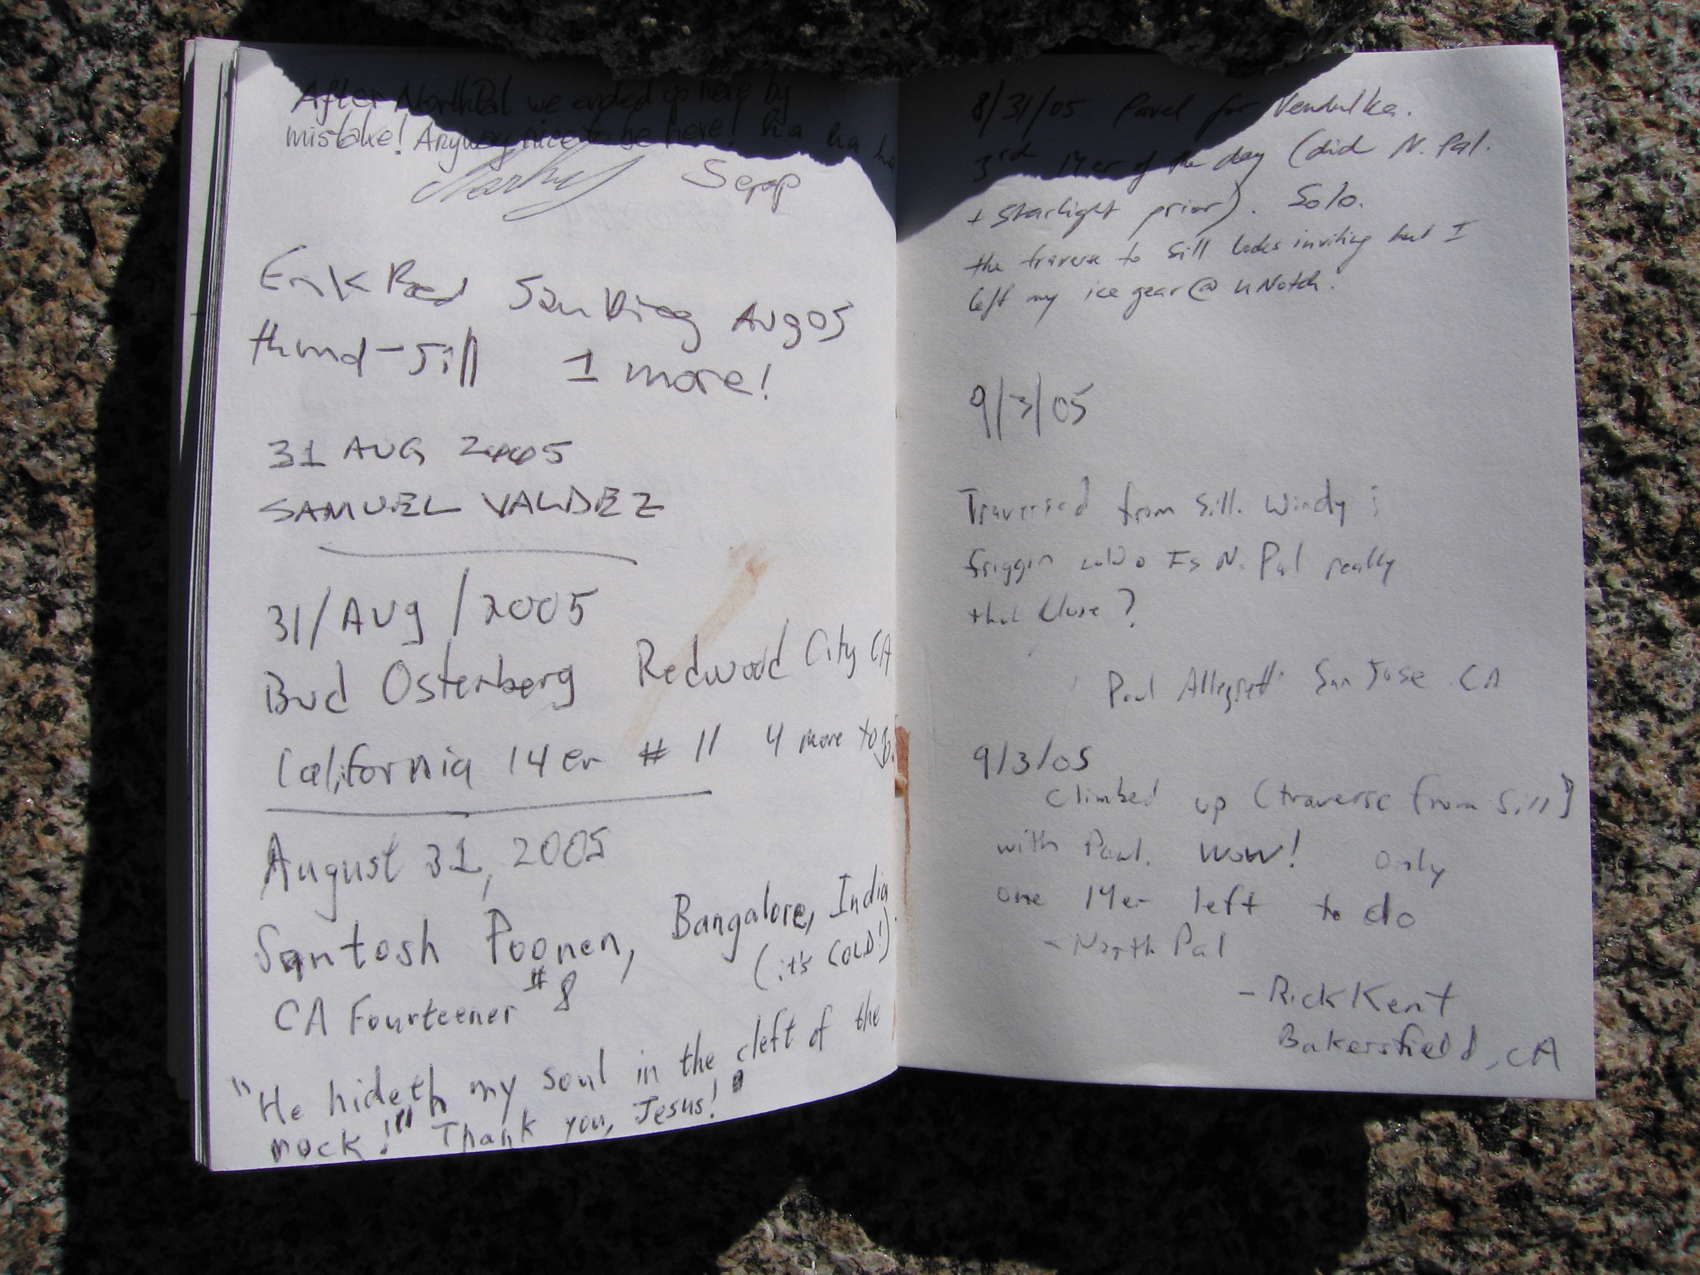 After North Pal we ended up here by
mistake! Anyway nice to be here! ha ha ha
Sepp
Erik San Diego Aug 05
thund-Sill 1 more!
31 AUG 2005
SAMUEL VALDEZ
31/Aug/2005
Bud Ostenberg Redwood City CA
California 14er # 11 4 more to go.
August 31, 2005
Santosh Poonen, Bangalore, India
CA Fourteener #8 (it's COLD!)
"He hideth my soul in the cleft of the
rock!" Thank you, Jesus!
8/31/05 Pavel for Vendulka.
3rd 14er of the day (did N. Pal.
+ Starlight prior). Solo.
the traverse to Sill looks inviting but I
left my ice gear @ UNotch.
9/3/05
Traversed from Sill. Windy
friggin cold. Is N. Pal really
that close?
Paul Allegretti San Jose CA
9/3/05
Climbed up (traverse from Sill)
with Paul. WOW! Only
one 14er left to do
- North Pal
- Rick Kent
Bakersfield, CA